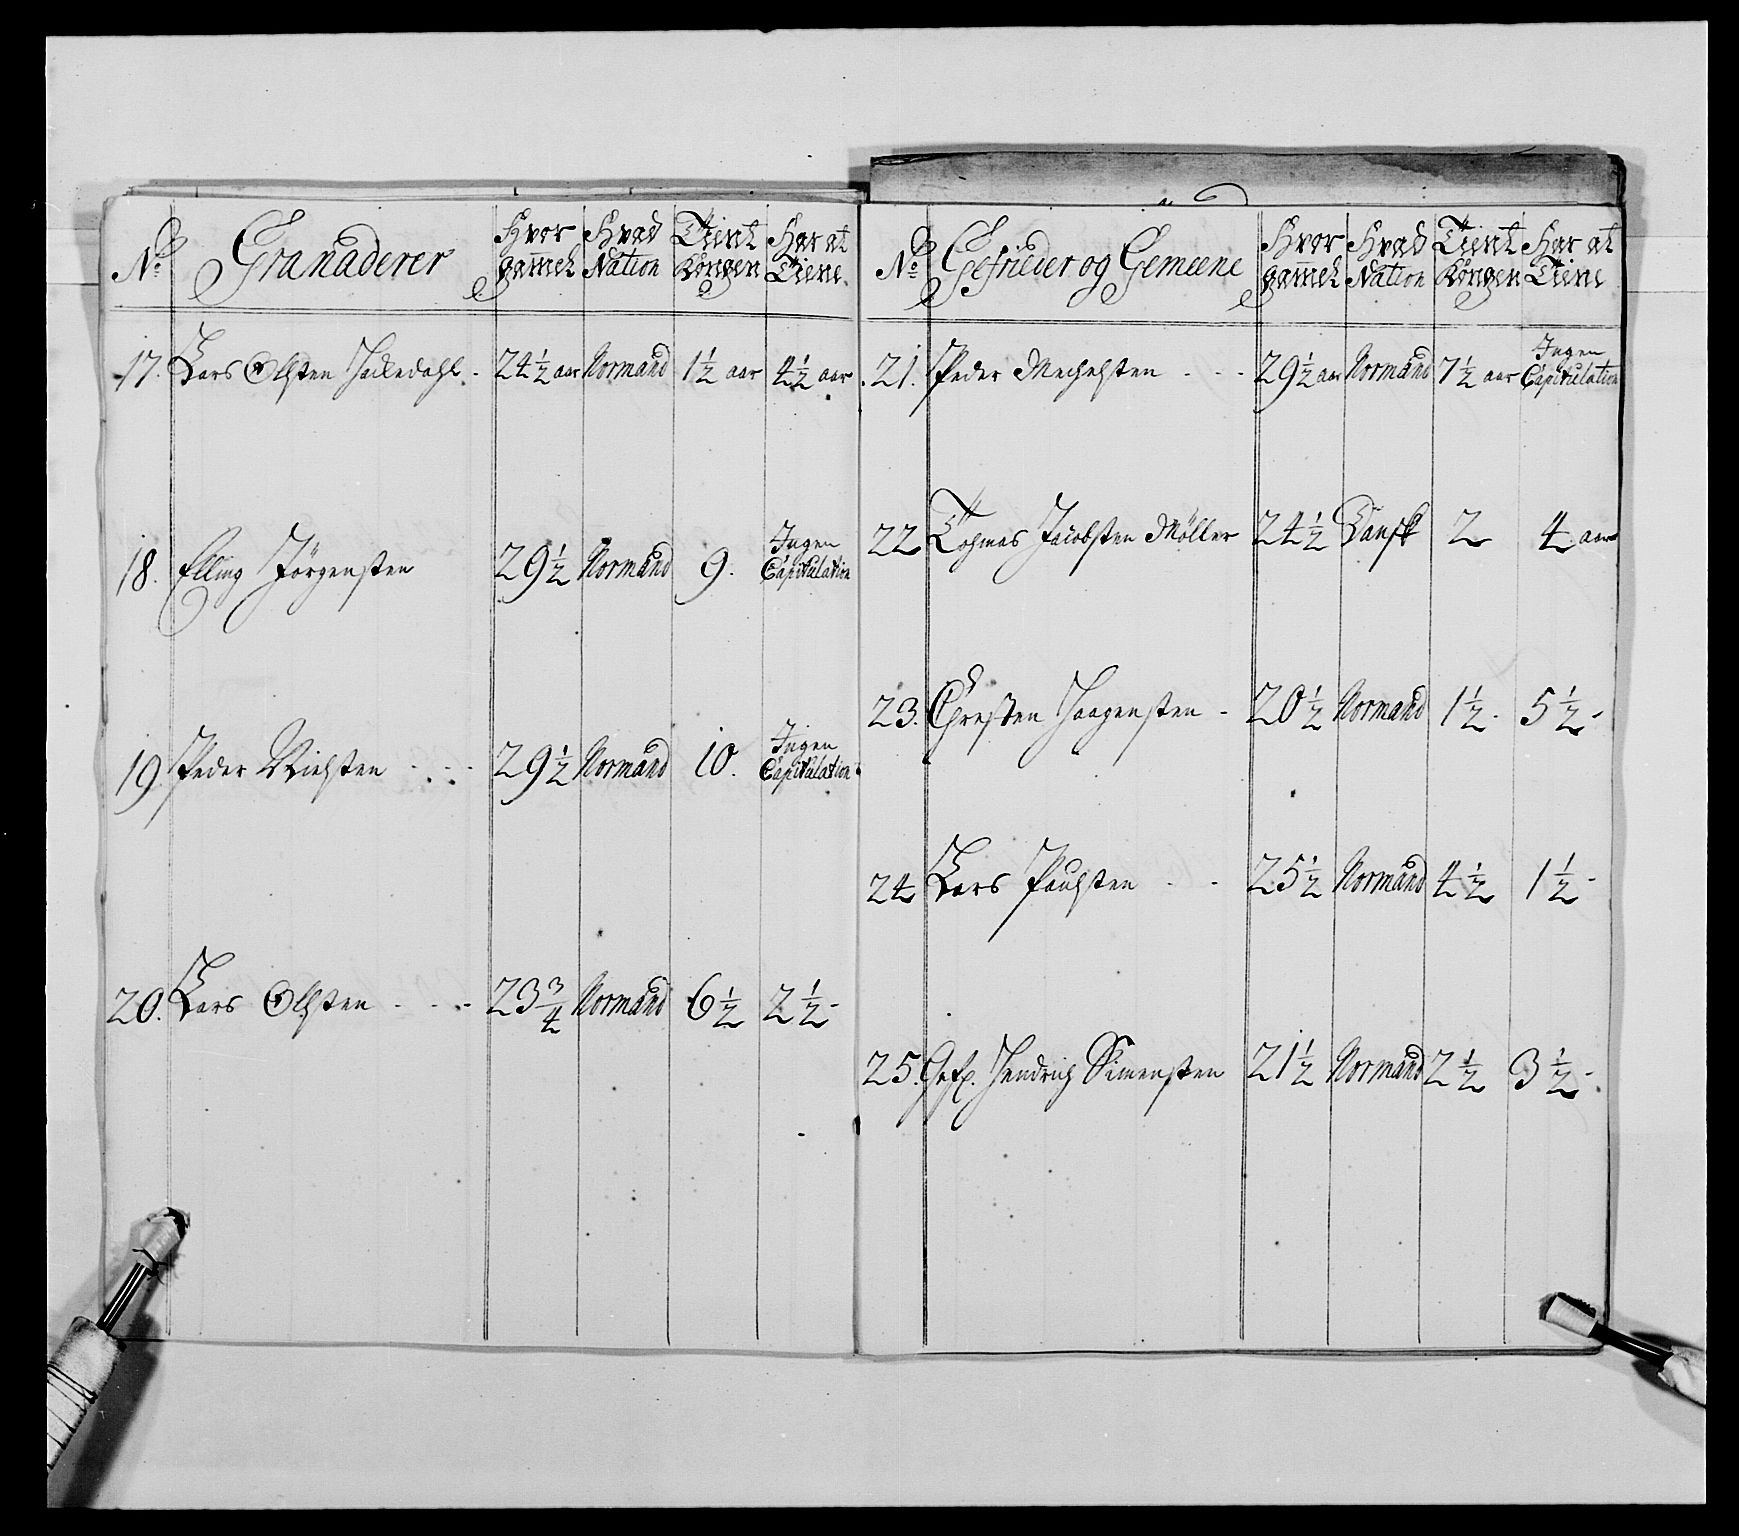 No Granaderer Hvor gamel Hvad Nation Tient Kongen Har at Tiene.
17. Lars Olssen Halledahl - 24 1/2 aar Normand 1 1/2 aar 4 1/2 aar
18. Elling Jørgensen 29 1/2 Normand 9. Ingen Capitulation
19. Peder Nielsen - - - 29 1/2 Normand 10. Ingen Capitulation
20. Lars Olssen - - - 23 3/4 Normand 6 1/2 2 1/2 -
No Gefrieder og Gemeene Hvor gamel Hvad Nation Tient Kongen Har at Tiene
21. Peder Mechelsen - - - 29 1/2 aar Normand 7 1/2 aar Ingen Capitulation
22 Tohmas Jacobsen Møller 24 1/2 Dansk 2 4 aar
23. Christen Haagensen - 20 1/2 Normand 1 1/2 - 5 1/2 -
24 Lars Paulsen - - 25 1/2 Normand 4 1/2 1 1/2 -
25. Gefr. Hendrich Simensen 21 1/2 Normand 2 1/2 3 1/2 -